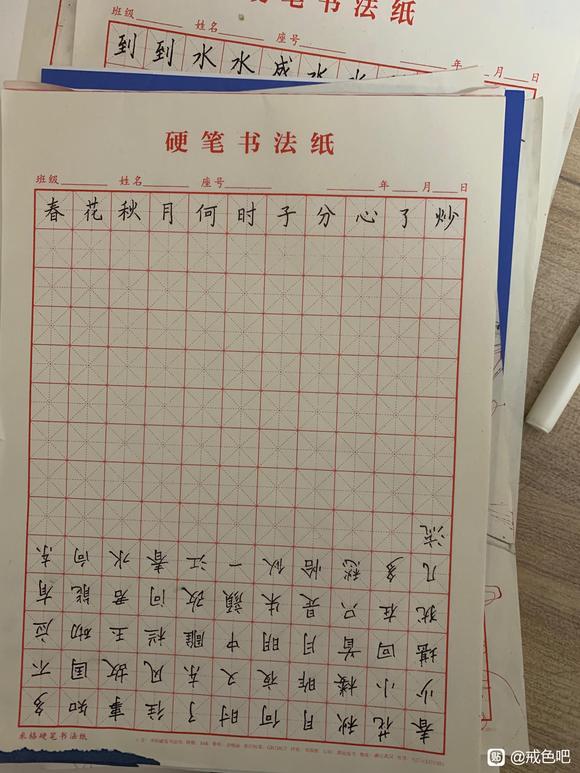 硬笔书法纸
班级 姓名 座号 年 月 日
到到水水成水水
硬笔书法纸
班级 姓名 座号 年 月 日
春花秋月何时子分心了炒
春花秋月何时了往事知多
少小楼昨夜又东风故国不
堪回首月明中雕栏玉砌应
犹在只是朱顏改问君能有
几多愁恰似一江春水向东
流
米格硬笔书法纸
贴 @戒色吧